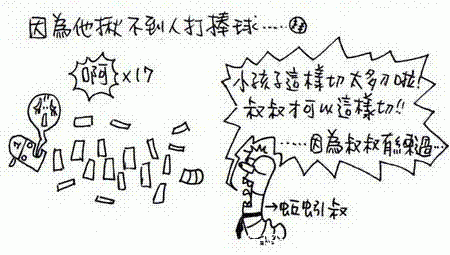 因為他揪不到人打棒球……
啊 x17
小孩子這樣切太多刀啦!
叔叔才可以這樣切!!
……因為叔叔有練過…
→蚯蚓叔